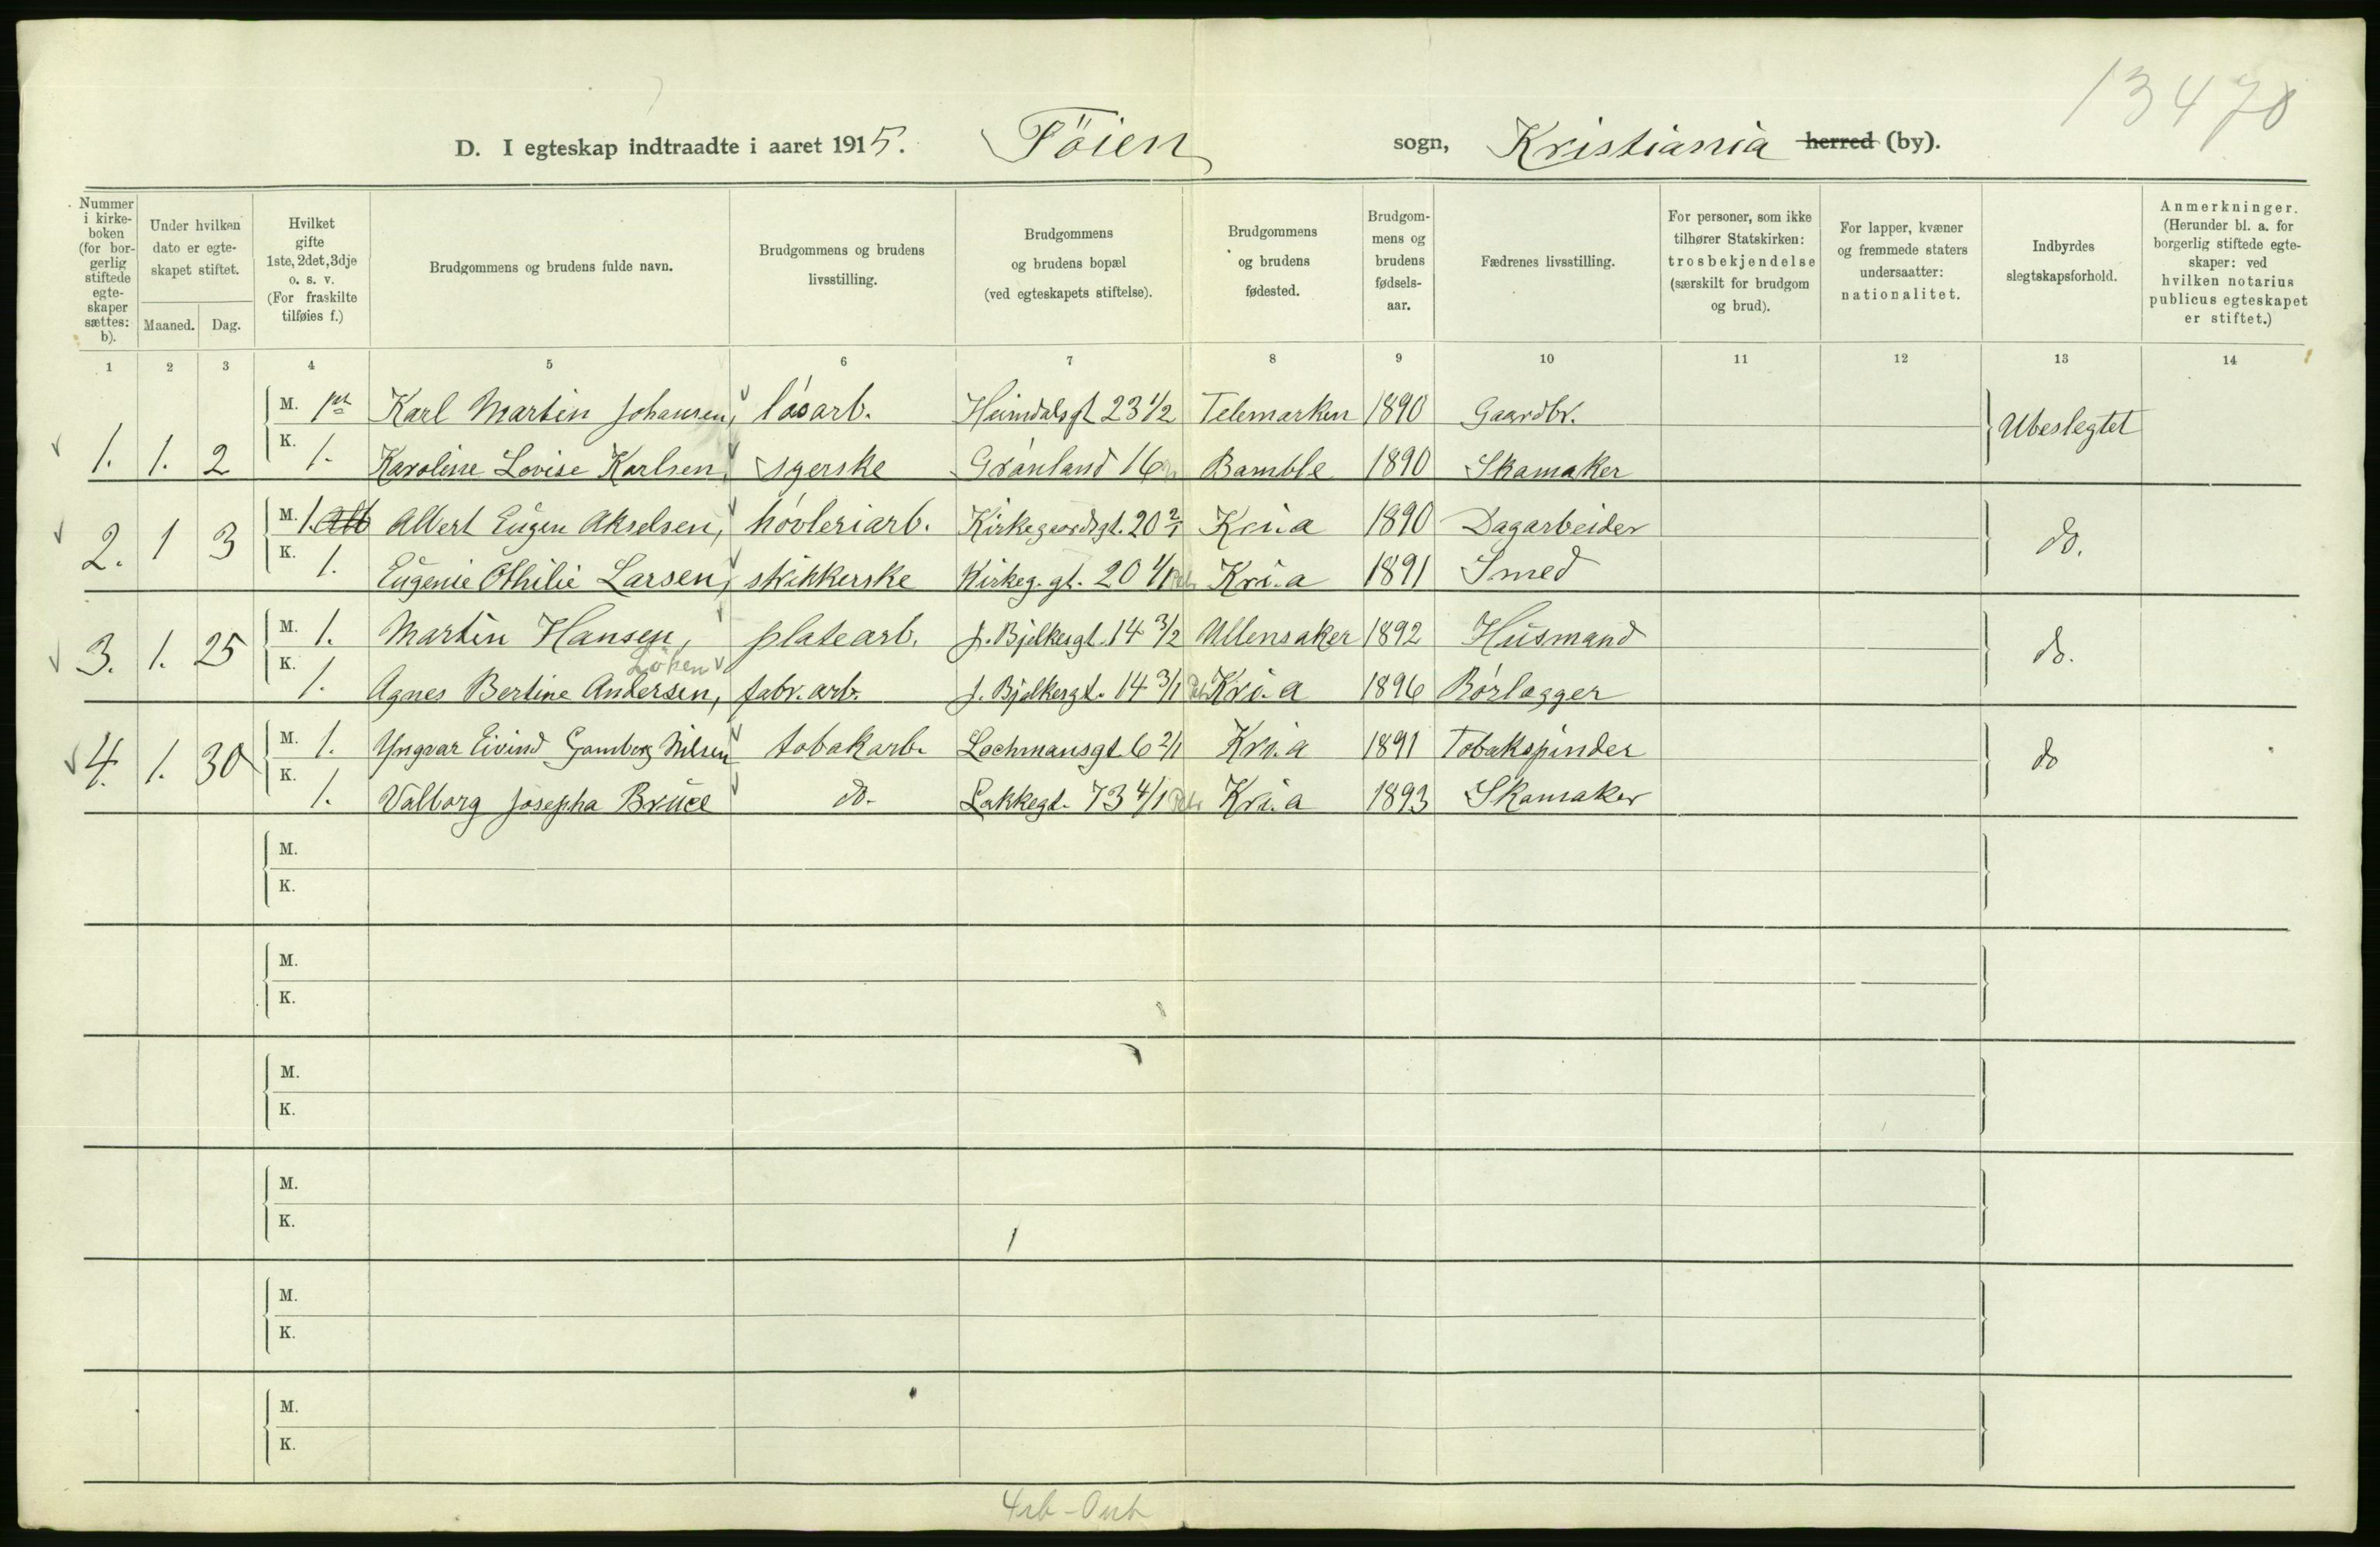 13470
D. I egteskap indtraadte i aaret 1915. Töien sogn, Kristiania herred (by).
Nummer i kirkeboken (for borgerlig stiftede egteskaper sættes: b).
Under hvilken dato er egteskapet stiftet.
Maaned. Dag.
Hvilket gifte 1ste, 2det, 3dje o. s. v. (For fraskilte tilføies f.)
Brudgommens og brudens fulde navn.
Brudgommens og brudens livsstilling.
Brudgommens og brudens bopæl (ved egteskapets stiftelse).
Brudgommens og brudens fødested.
Brudgommens og brudens fødselsaar.
Fædrenes livsstilling.
For personer, som ikke tilhører Statskirken: trosbekjendelse (særskilt for brudgom og brud).
For lapper, kvæner og fremmede staters undersaatter: nationalitet.
Indbyrdes slegtskapsforhold.
Anmerkninger. (Herunder bl. a. for borgerlig stiftede egteskaper: ved hvilken notarius publicus egteskapet er stiftet.)
1 2 3 4 5 6 7 8 9 10 11 12 13 14
M. 1st Karl Martin Johansen, låsarb. Heimdalsgt 23 1/2 Telemarken 1890 Gaardbr. Ubeslegtet
1. 1. 2 K. 1. Karoline Lovise Karlsen, syerske Grønland 16 Bamble 1890 Skomaker
M. 1. Albert Eugen Akselsen, høvleriarb. Kirkegaardsgt. 20 2/1 Kria 1890 Dagarbeider do.
2. 1 3 K. 1. Eugenie Othilie Larsen, strikkerske Kirkeg. gt. 20 1/1 Kri.a 1891 Smed
M. 1. Martin Hansen, platearb. J. Bjelkesgt. 14 3/2 Ullensaker 1892 Husmand do.
3. 1. 25 K. 1. Agnes Bertine Andersen, fabr. arb. J. Bjelkesgt. 14 3/1 Kri.a 1896 Rørlægger
M. 1. Yngvar Eivind Gamborg Nilsen tobakarb. Lochmansgt. 6 2/1 Kri.a 1891 Tobakspinder do
4. 1. 30 K. 1. Valborg Josepha Bruce do. Lakkegt. 73 4/1 Kri.a 1893 Skomaker
M.
K.
M.
K.
M.
K.
M.
K.
M.
K.
M.
K.